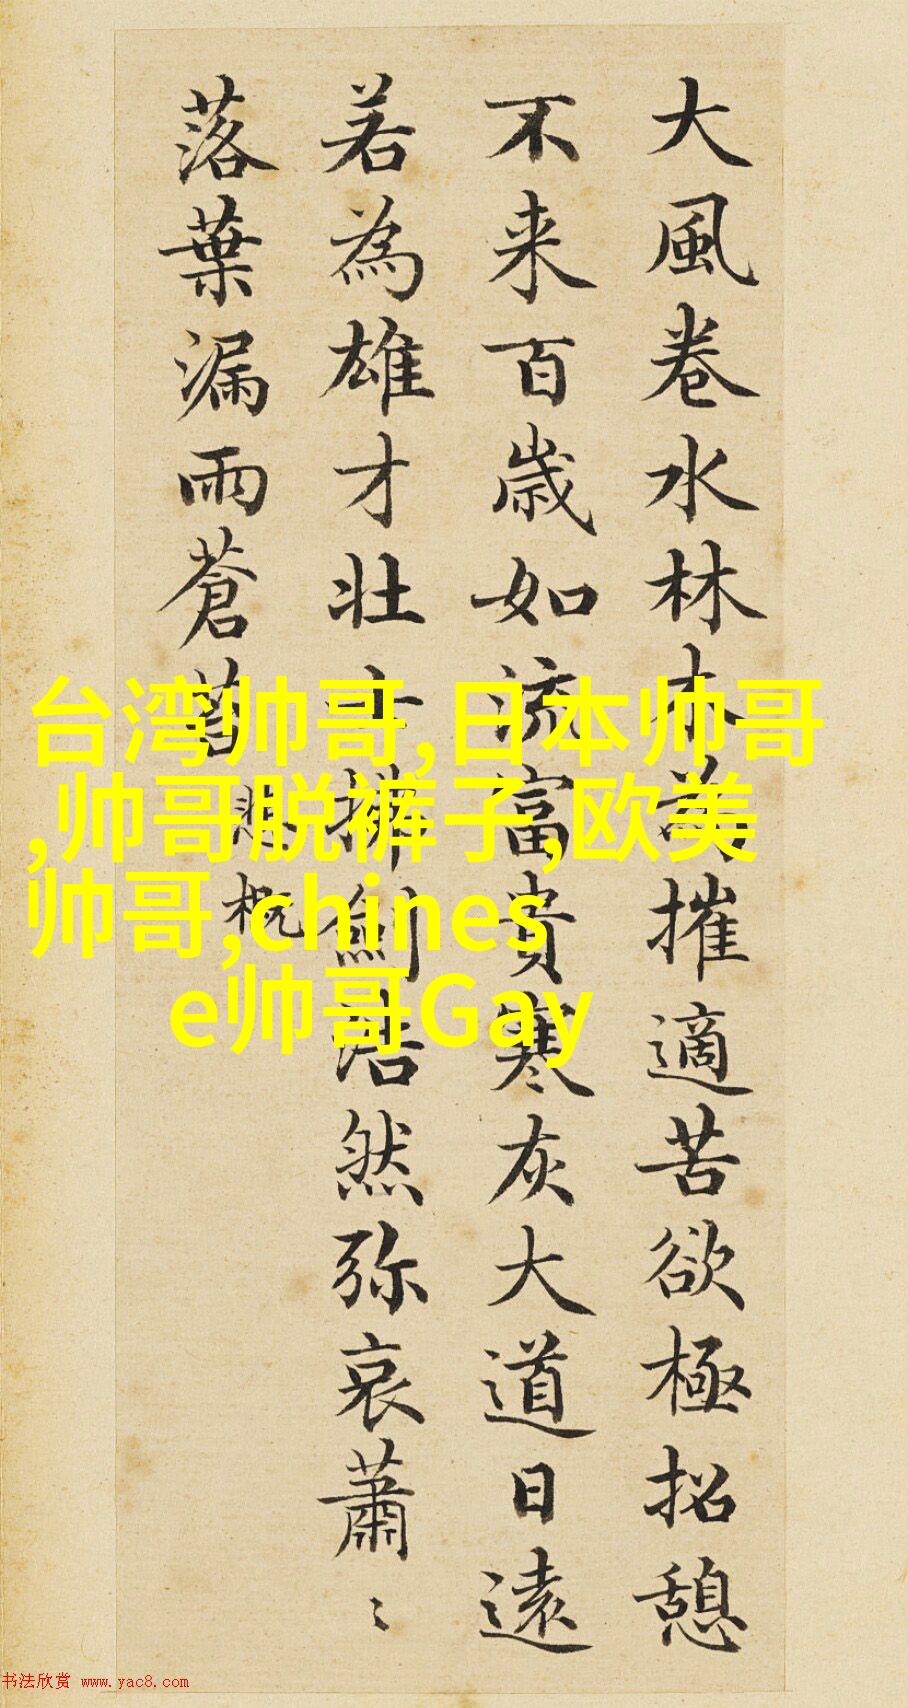 大風卷水林木為摧適苦欲極招憩
不来百歳如流富貴寒灰大道日遠
若為雄才壮士拂劍浩然弥哀蕭〻
落葉漏雨蒼苔
悲概
台湾帅哥,日本帅哥
,帅哥脱裤子,欧美
帅哥,chines
e帅哥Gay
书法欣赏 www.yac8.com